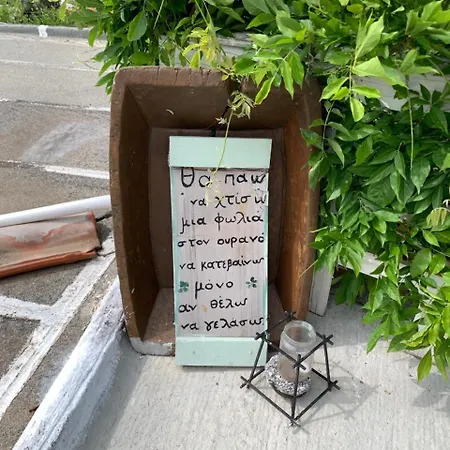 Θα παω
να χτισω
μια φωλιά
στον ουρανό
να κατεβαίνω
μόνο
αν θέλω
να γελάσω